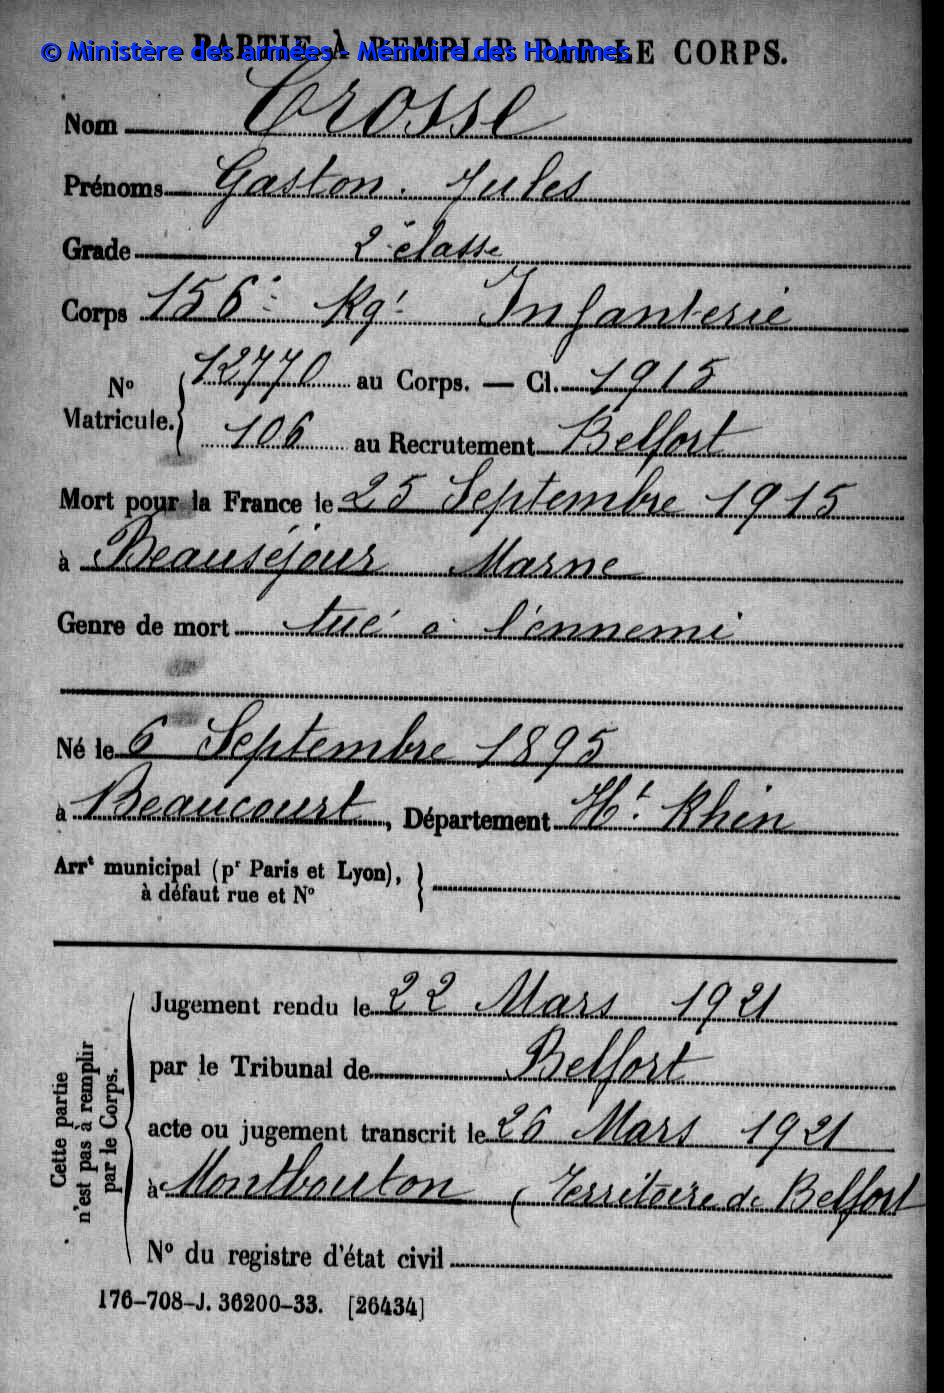 PARTIE À REMPLIR PAR LE CORPS.
© Ministère des armées - Mémoire des Hommes
Nom Crosse
Prénoms Gaston. Jules
Grade 2e classe
Corps 156e Rgt Infanterie
No Matricule. { 12770 au Corps. — Cl. 1915
106 au Recrutement Belfort
Mort pour la France le 25 Septembre 1915
à Beauséjour Marne
Genre de mort tué à l'ennemi
Né le 6 Septembre 1895
à Beaucourt, Département Ht. Rhin
Arrt municipal (pr Paris et Lyon), }
à défaut rue et No
Cette partie n'est pas à remplir par le Corps.
Jugement rendu le 22 Mars 1921
par le Tribunal de Belfort
acte ou jugement transcrit le 26 Mars 1921
à Montbouton (Territoire de Belfort
No du registre d'état civil
176-708-J. 36200-33. [26434]